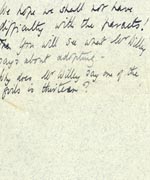 We hope we shall not have
difficulty with the parents!
Then you will see what Mr Willey
says about adopting -
Why does Mr Willey say one of the
girls is thirteen?